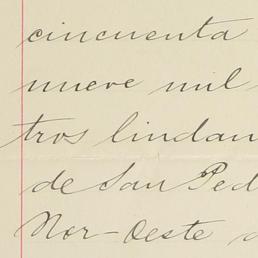 cincuenta
nueve mil
tros lindan
de San Ped
Nor-Oeste